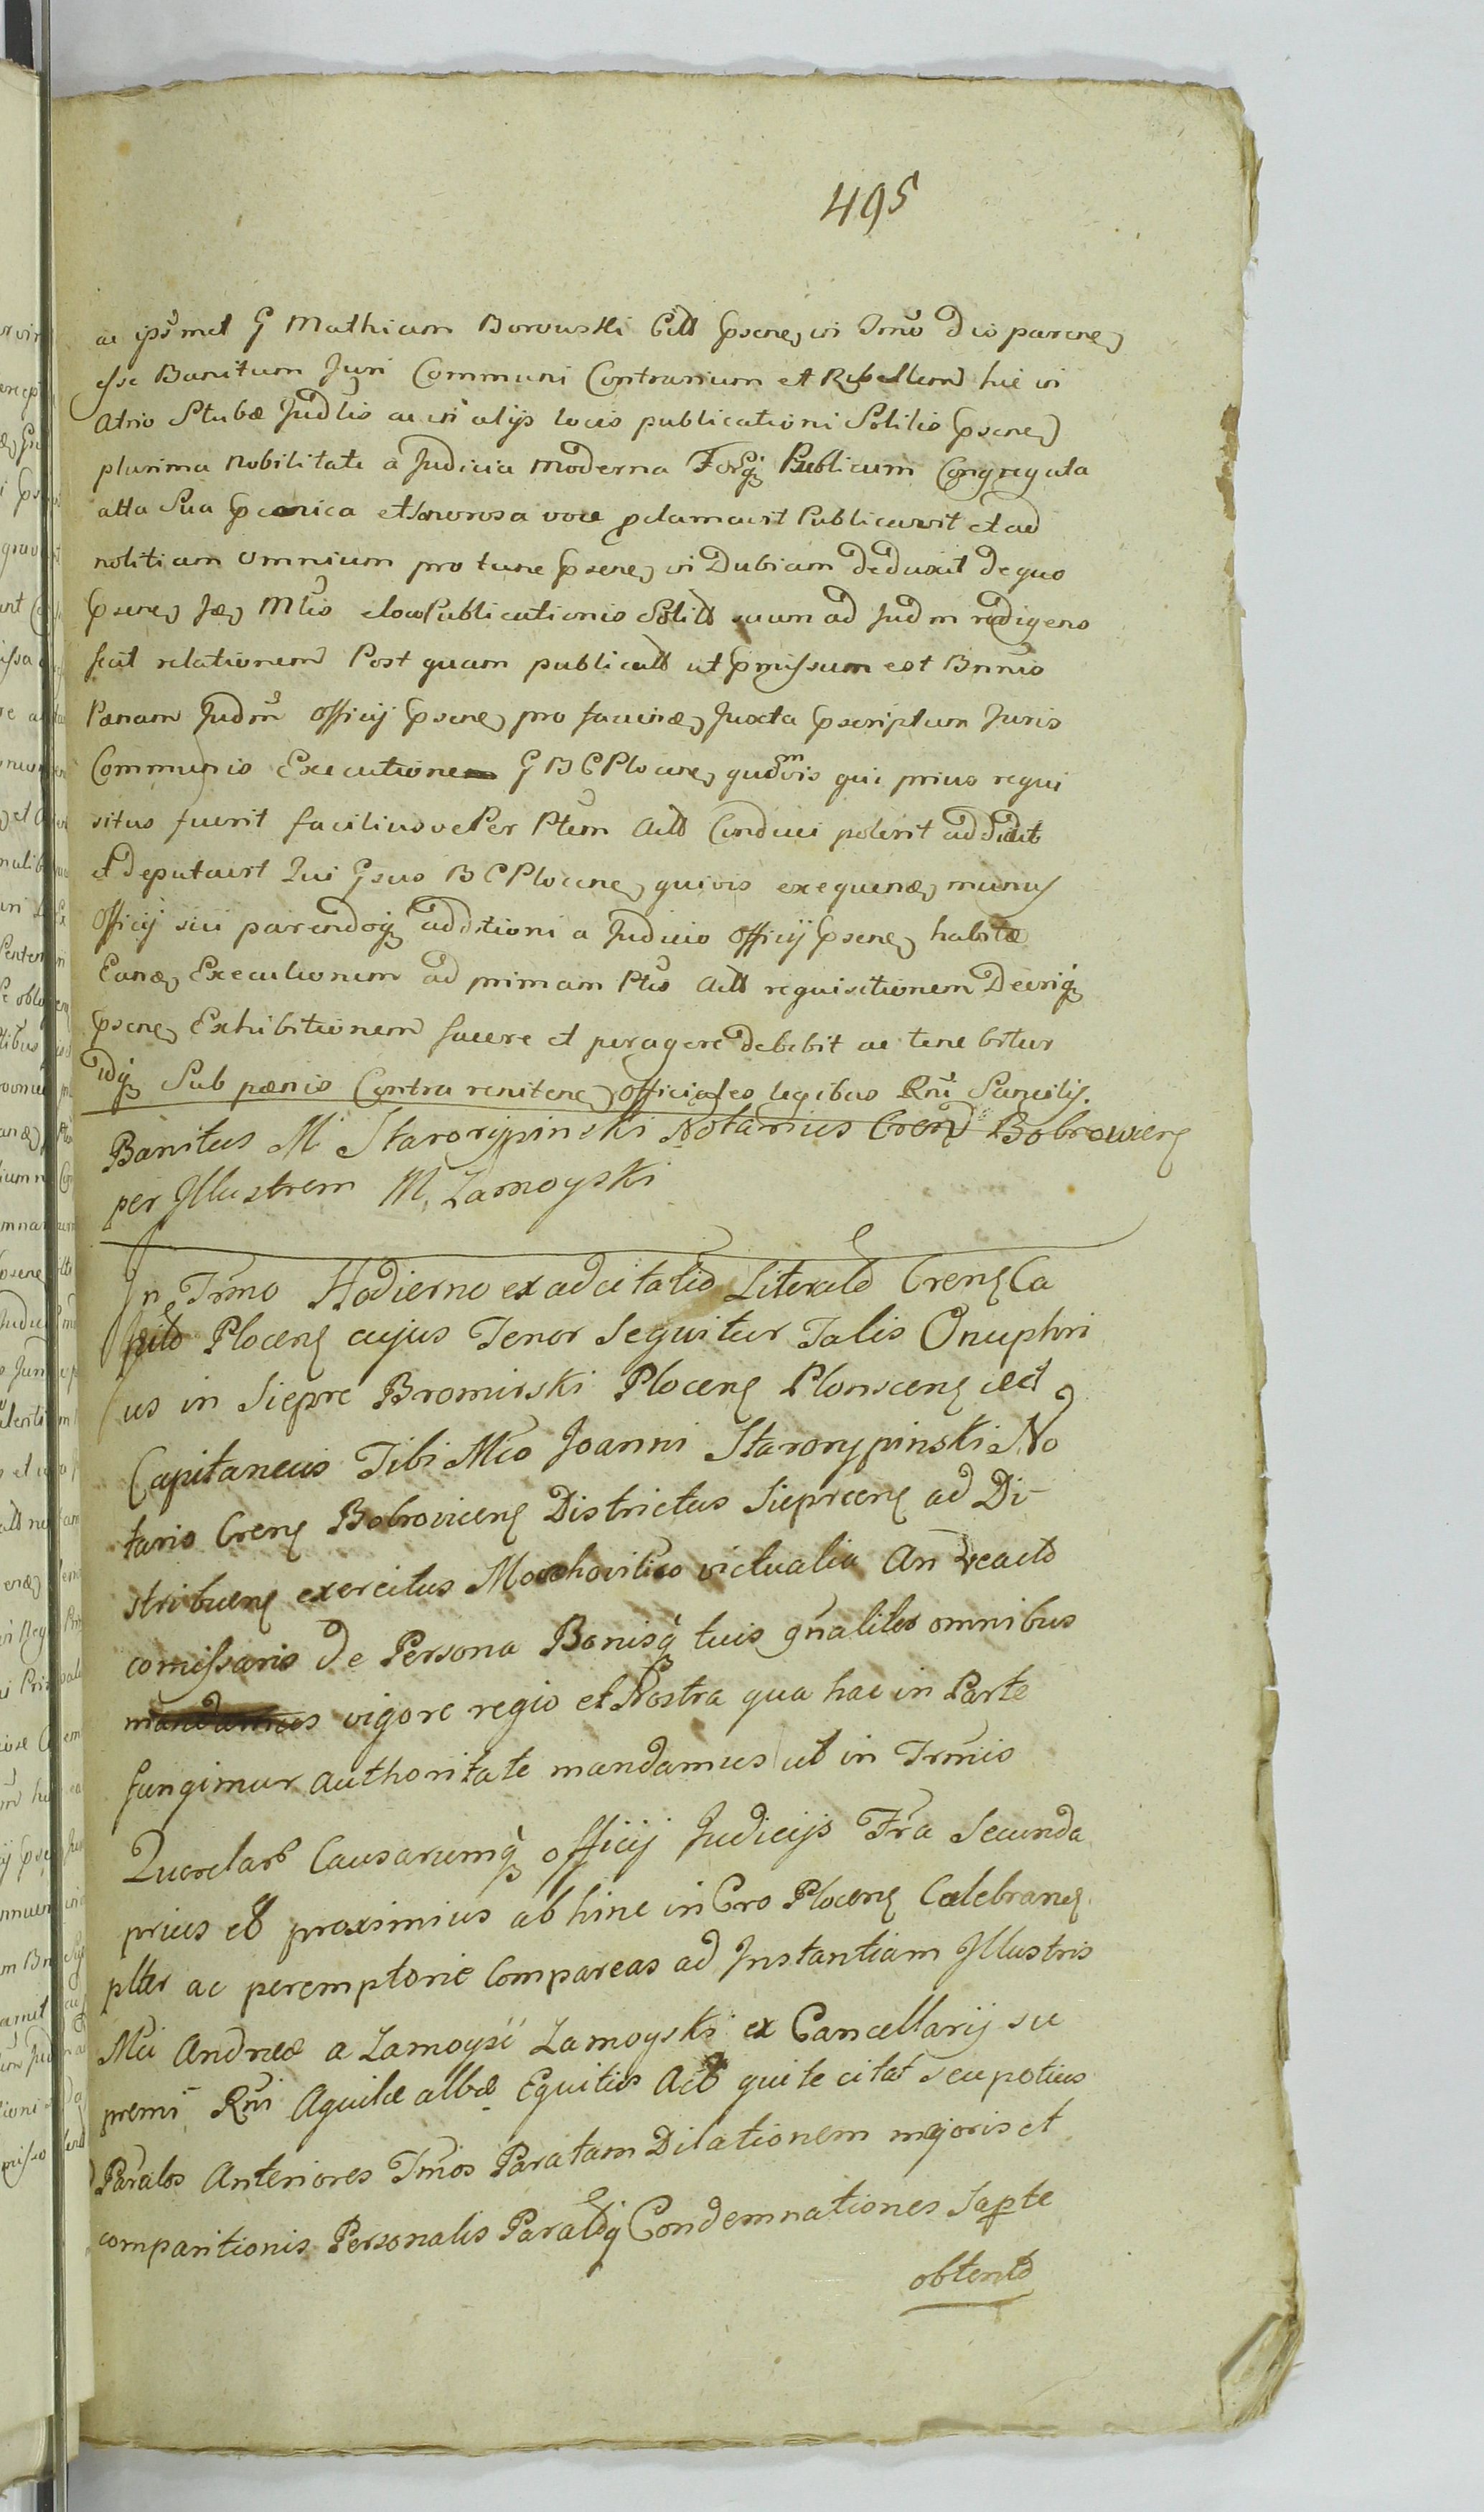 495
ac ipsūmet G Mathiam Borowski Citt pseneȝ in Trmo dio pareneȝ
esse Banitum Juri Communi Contrarium et Rebellem hic in
Atrio Stubæ Judlis ac in alys locis publicationi Solilis pseneȝ
plurima Nobilitate a Judicia moderna Forȝ Publicum Congregata
alta Sua Sonorosa voce pclamavit Publicavit et ad
notitiam omnium pro tunc pseneȝ in Dubiam deduxit de quo
pseneȝ Mtis eloco Publicationis Solitt suum ad Judm redigens
fecit relationem Post quam publicatt ut pmissum est Bnnis
Pænam Judm Officij pseneȝ pro facienæȝ Juxta pscriptum Juris
Communis Executione G B C Ploceneȝ qudmvis qui prius requi
situs fuerit faciliusve Per Ptem Actt Conduci poterit addidit
et deputavit Qui Gsus B C Ploceneȝ quivis exequenæȝ munus
Officij sui parendoqȝ additioni a Judicio Officij pseneȝ habitæ
Eanæȝ Executionem ad primam Ptis Actt requisitionem Decriqȝ
pseneȝ Exhibitionem facere et peragere debebit ac tenebitur
idqȝ Sub pænis Contra reniteneȝ Officiales legibus Rni Sancitis.
Banitus M Starorypinski Notarius Cren Bobrowiens
per Illustrem M. Zamoyski
In Trmo Hodierno ex adcitatio Literate Crens Ca
pito Plocens cujus Tenor Sequitur Talis Onuphri
us in Siepre Bromirski Plocens Plonscens ect
Capitaneus Tibi Mco Joanni Starorypinski No
tario Crens Bobrovicens Districtus Sieprcens ad Di-
stribuens exercitus Moschovitico victualia An
comissario de Persona Bonisq tuis gnaliter omnibus
vigore regio et Nostra qua hac in Parte
fungimur authoritate mandamus ut in Trmis
Querelar Causarumq officij Judicijs Fra Secunda
prius et proximius ab hinc in Cro Plocens Celebrans
plter ac peremptorie Compareas ad Instantiam Illustris
Mci Andreæ a Zamoyscie Zamoyski ex Cancellarij su
premi Rni Aquilæ albæ Equitis Act qui te citat seu potius
Paratos Anteriores Tmos Paratam Dilationem majoris et
comparitionis Personalis Paratasq Condemnationes Sapte
obtento